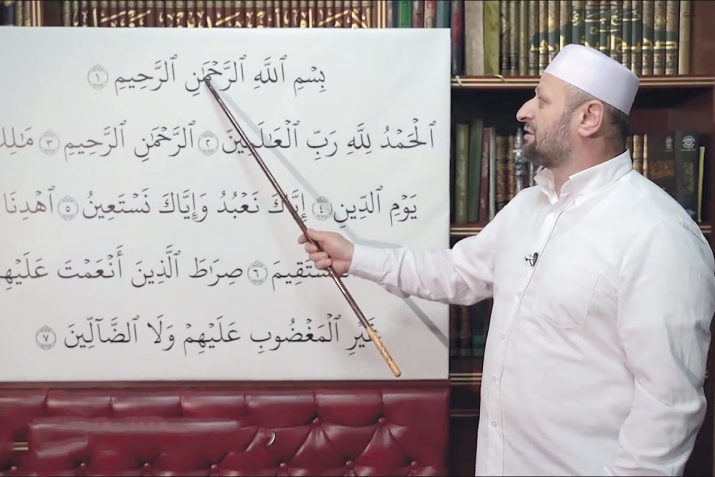 بِسْمِ ٱللَّهِ ٱلرَّحْمَٰنِ ٱلرَّحِيمِ ١
ٱلْحَمْدُ لِلَّهِ رَبِّ ٱلْعَـٰلَمِينَ ٢ ٱلرَّحْمَٰنِ ٱلرَّحِيمِ ٣ مَـٰلِكِ
يَوْمِ ٱلدِّينِ ٤ إِيَّاكَ نَعْبُدُ وَإِيَّاكَ نَسْتَعِينُ ٥ ٱهْدِنَا
ٱلْمُسْتَقِيمَ ٦ صِرَٰطَ ٱلَّذِينَ أَنْعَمْتَ عَلَيْهِمْ
غَيْرِ ٱلْمَغْضُوبِ عَلَيْهِمْ وَلَا ٱلضَّآلِّينَ ٧